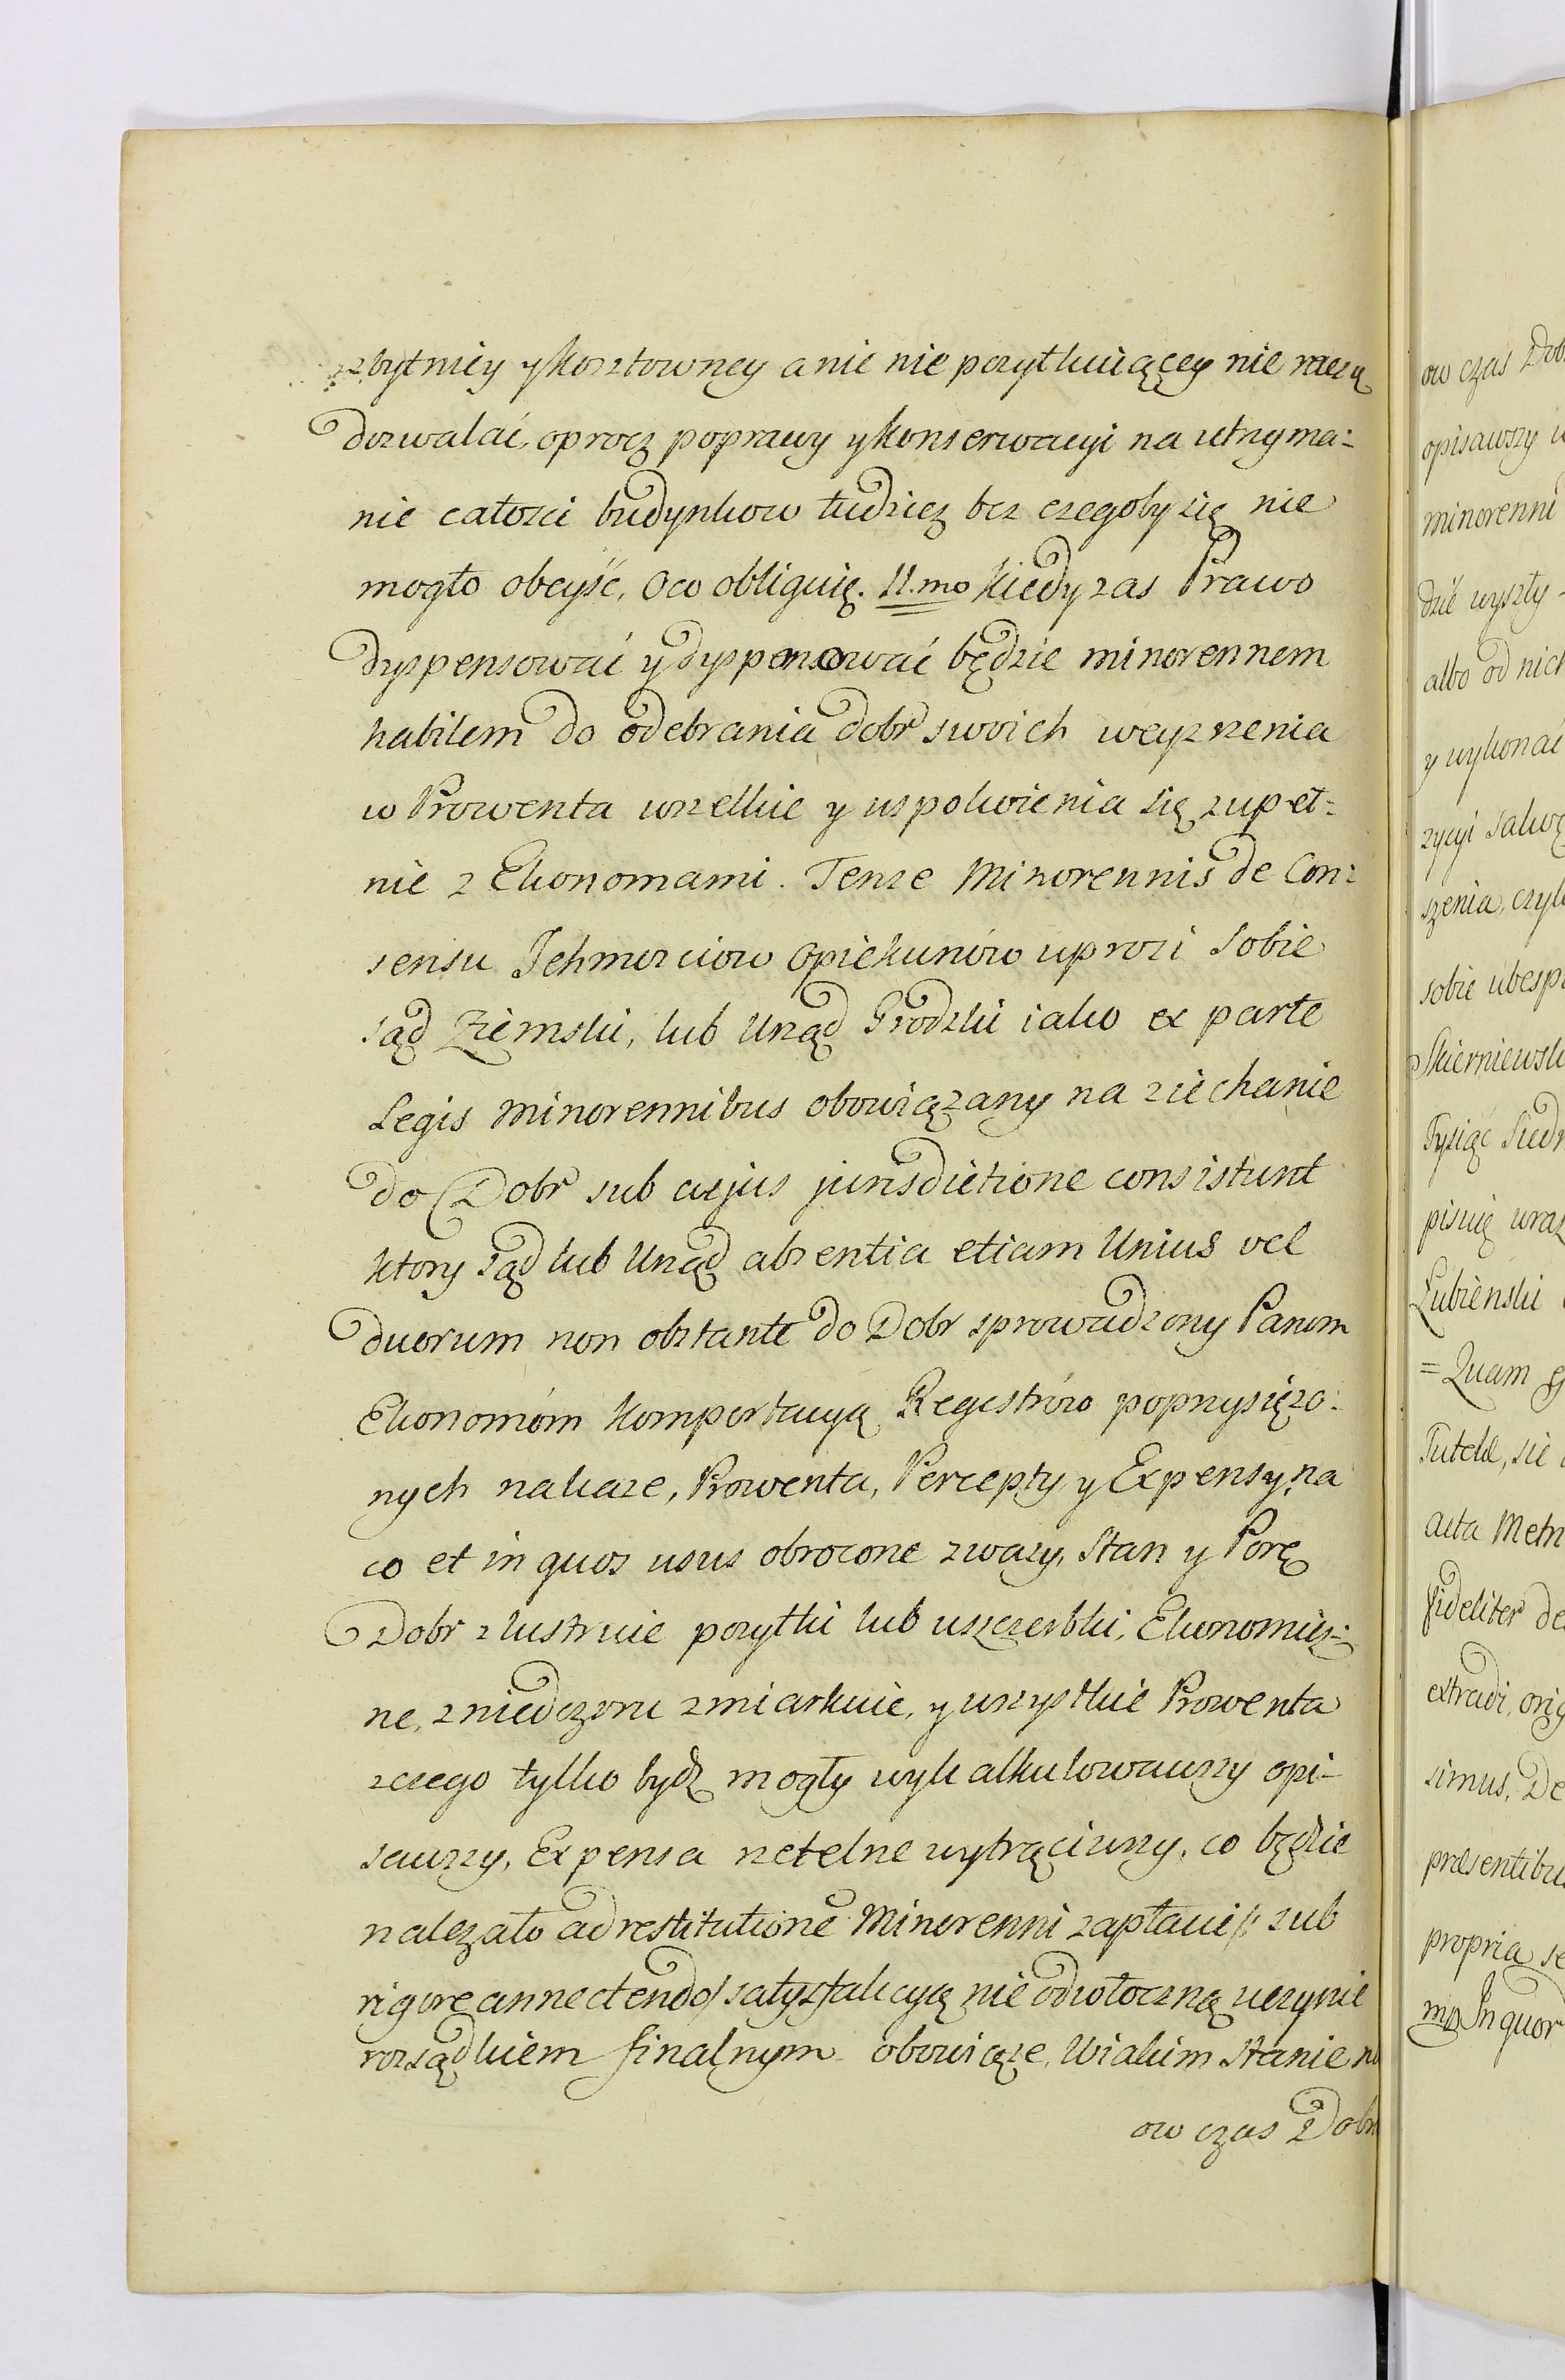 zbytniey y kosztowney a nic nie pozytkuiącey nie raczą
dozwalać, oprocz poprawy y konserwacyi na utrzyma=
nie całosci budynkow tudziez bez czegoby się nie
mogło obeyść, o co obliguię. 11.mo Kiedy zas Prawo
dyspensować y dyspensować będzie minorennem
habilem do odebrania dobr swoich weyzrzenia
w Prowenta wszelkie y uspokoienia się zupeł=
nie z Ekonomami. Tenze Minorennis de Con=
sensu Jchmosciow Opiekunów uprosi sobie
sąd Ziemski, lub Urząd Grodzki iako ex parte
Legis minorennibus obowiązany na ziechanie
do Dobr sub cujus jurisdictione consistunt
ktory sąd lub Urząd absentia etiam Unius vel
duorum non obstante do Dobr sprowadzony Panom
Ekonomóm komportacyą Regestrów poprzysięzo=
nych nakaze, Prowenta, Percepty y Expensy, na
co et in quos usus obrocone zwazy, Stan y Porę
Dobr zlustruie pozytki lub uszczerbki, Ekonomicz=
ne, z niedozoru zmiarkuie, y wszystkie Prowenta
zczego tylko bydz mogły wykalkulowawszy opi=
sawszy, Expensa rzetelne wytrąciwszy, co będzie
nalezało ad restitutionē Minorenni zapłacić /: sub
rigore annectendo :/ satysfakcyą nieodwłoczną uczynić
rozsądkiem finalnym obowiąze, W iakim Stanie na
ow czas Dobr
ow czas Dob
opisawszy
minorenni
dzie wyszły
albo od nich
y wykonać
zycyi salwę
szenia, czyli
sobie ubesp
Skierniewsk
Tysiąc Siedm
pisuię wraz
Łubienski
= Quam
Tutelæ, sic
acta Metr
fideliter de
extradi, orig
simus, De
præsentibu
propria se
mp In quor